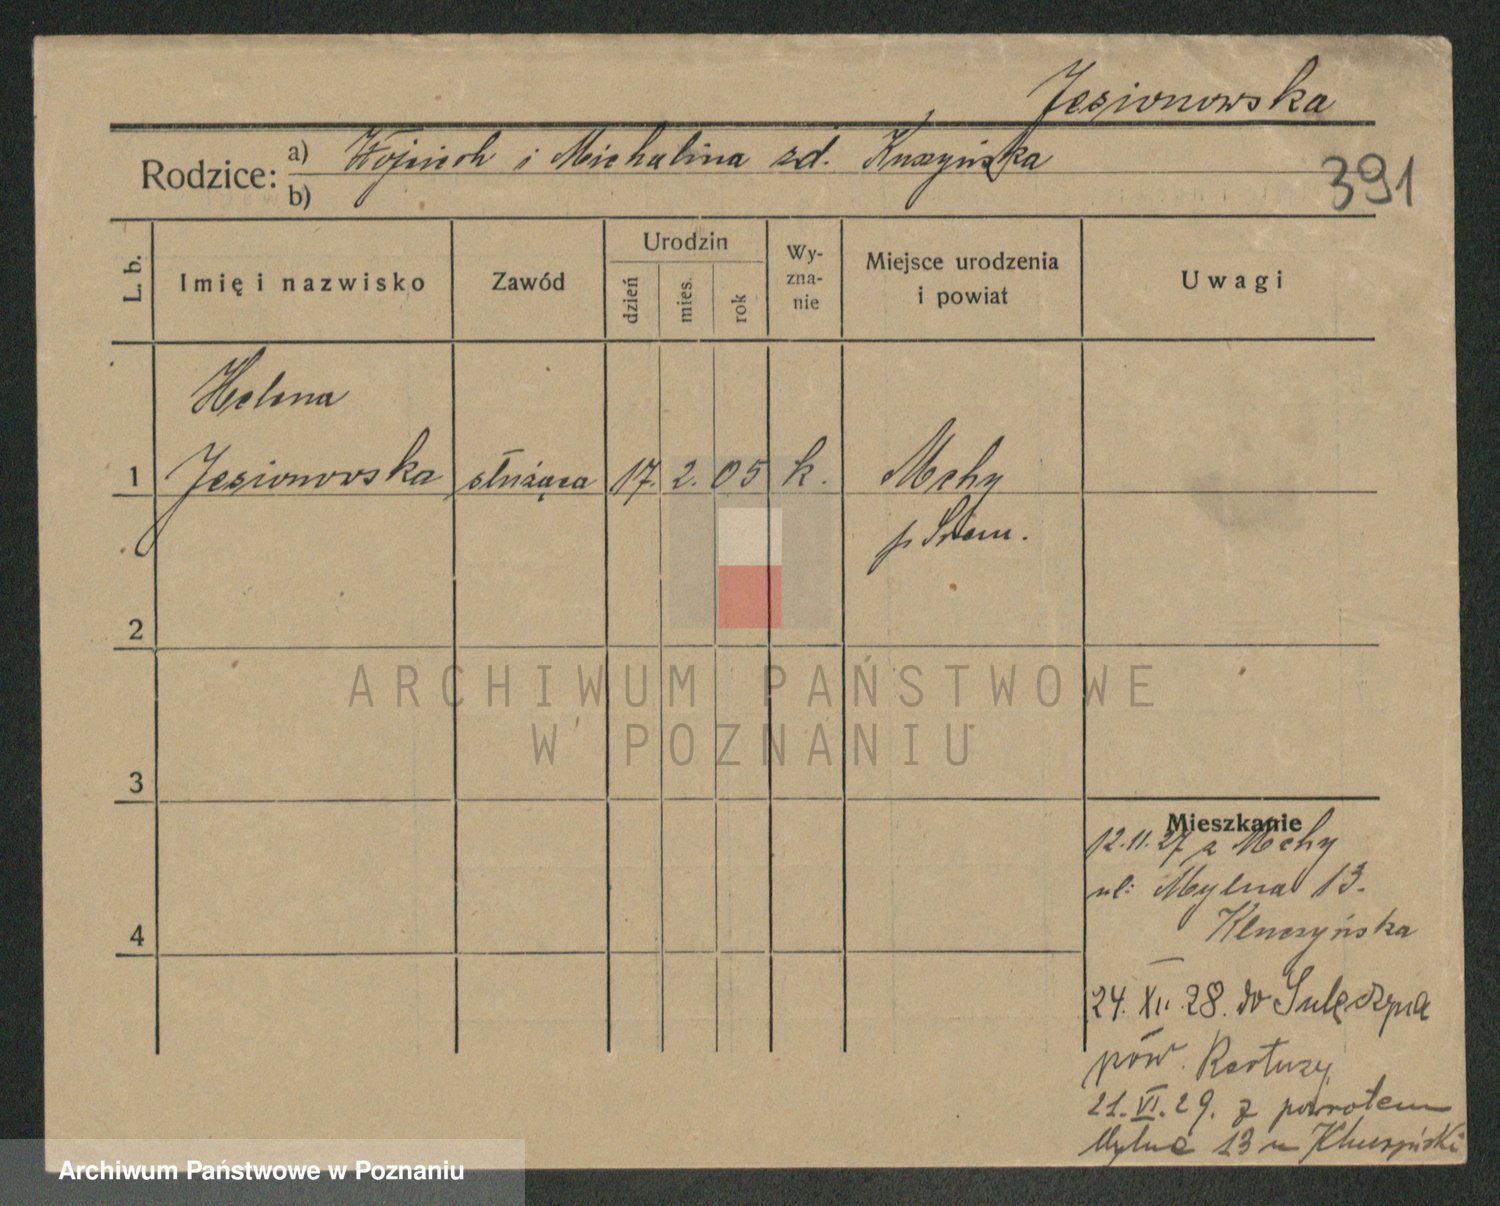 Jesionowska
Rodzice: a) Wojciech i Michalina zd. Kuszyńska
b)
391
L. b.
Imię i nazwisko
Zawód
Urodzin
dzień
mies.
rok
Wy-
zna-
nie
Miejsce urodzenia
i powiat
Uwagi
Helena
1 Jesionowska służąca 17. 2. 05 k. Mchy
p Śrem.
2
ARCHIWUM PAŃSTWOWE
W POZNANIU
3
Mieszkanie
12.11.27 z Mchy
ul: Mylna 13.
Kluczyńska
4
24. XII. 28. do Sulęczyna
pow. Kartuzy
21. VI. 29. z powrotem
Mylna 13 u
Archiwum Państwowe w Poznaniu